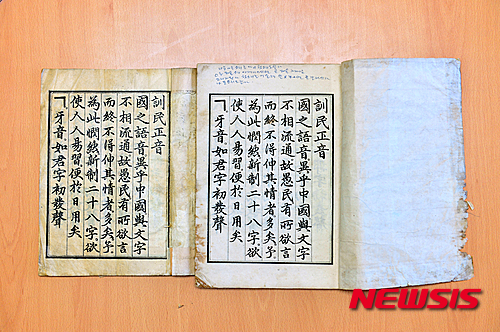 訓民正音
國之語音異乎中國與文字
不相流通故愚民有所欲言
而終不得伸其情者多矣予
為此憫然新制二十八字欲
使人人易習便於日用矣
ㄱ牙音如君字初發聲
訓民正音
國之語音異乎中國與文字
不相流通故愚民有所欲言
而終不得伸其情者多矣予
為此憫然新制二十八字欲
使人人易習便於日用矣
ㄱ牙音如君字初發聲
NEWSIS